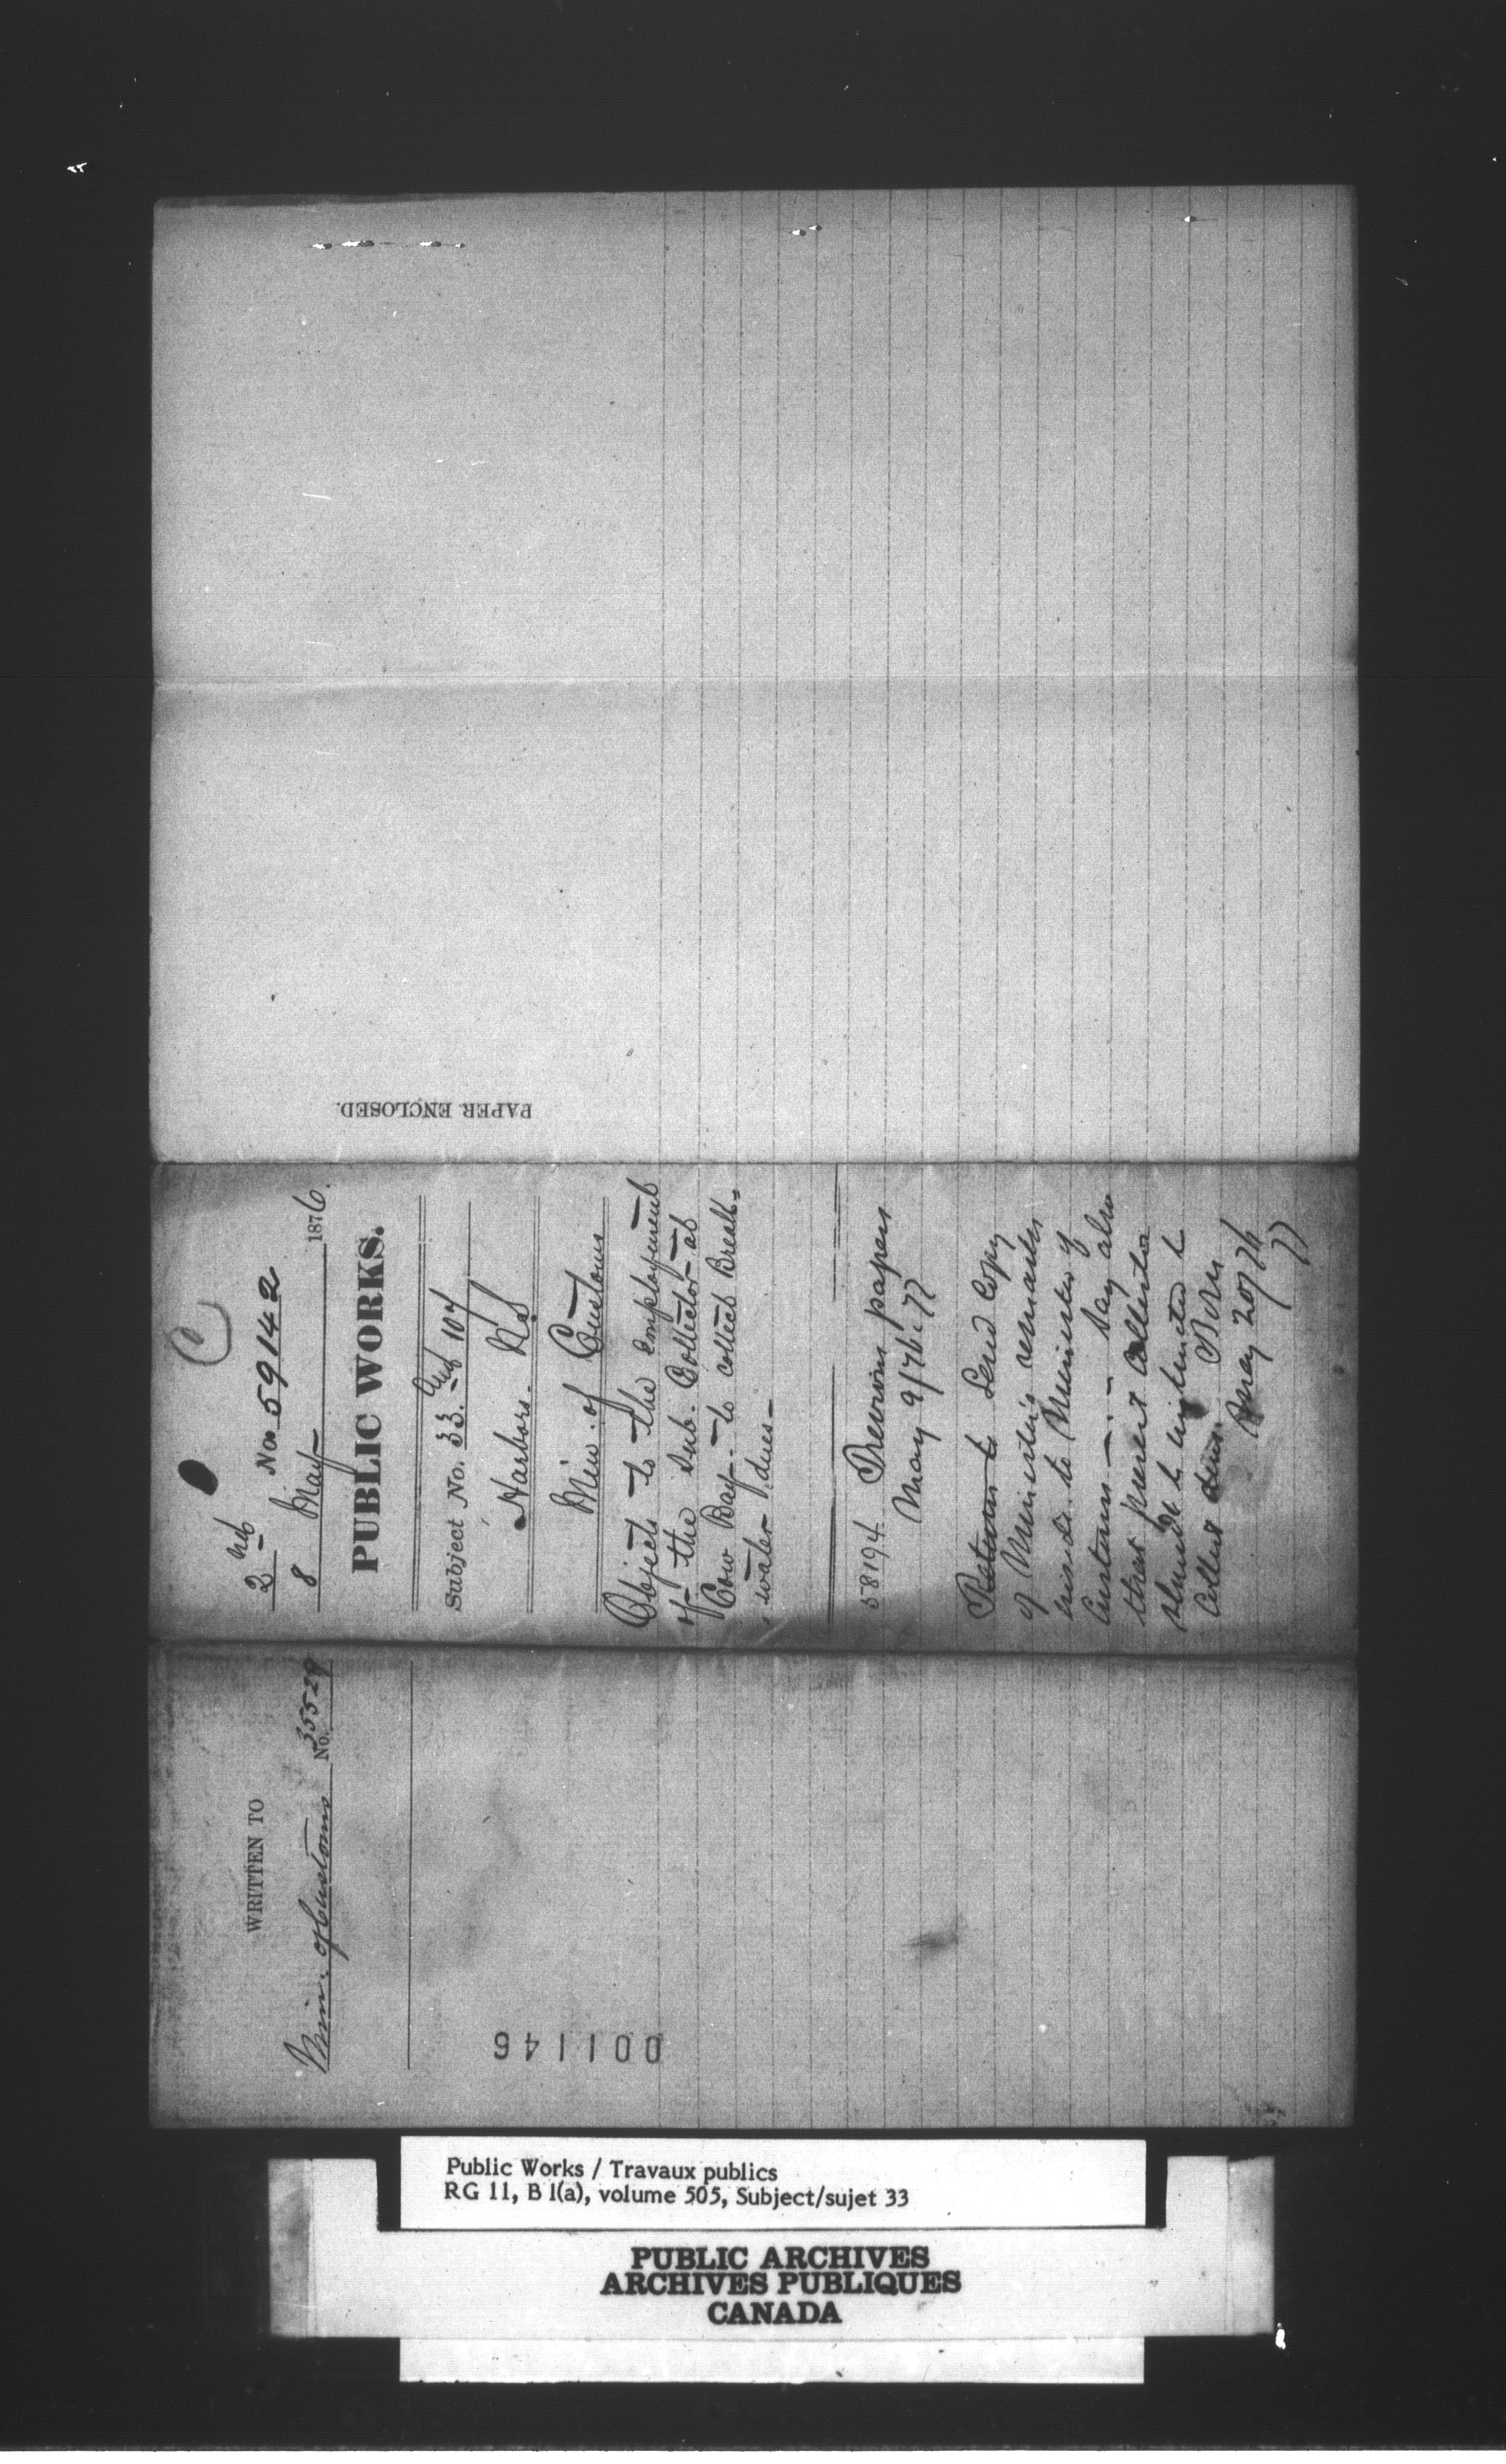 C
2 encl No 59142
8 May 1876.
PUBLIC WORKS.
Subject No. 33. Sub 104
Harbors. N.S.
Min. of Customs
Objects to the employment
of the Sub. Collector at
Cow Bay - to collect Break-
water dues -
58194. Previous papers
May 9/76
Return to Send Copy
of Minister's remarks
to Minister of
Customs - Say also
that present Collector
should be instructed to
Collect dues.
May 20/76
WRITTEN TO
Min. of Customs No. 35529
PAPER ENCLOSED.
001146
Public Works / Travaux publics
RG 11, B 1(a), volume 505, Subject/sujet 33
PUBLIC ARCHIVES
ARCHIVES PUBLIQUES
CANADA